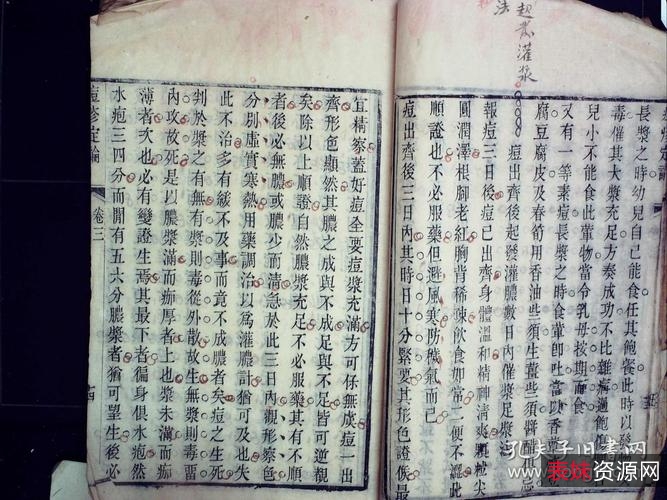 起灌漿
法
定論
長漿之時幼兒自己能食任其飽餐此時以發
毒催其大漿充足方奏成功不比雜症過飽
兒小不能食此葷物當令乳母按期而食
又有一等素痘長漿之時食葷卽吐當以香
腐豆腐皮及春筍用香油些須生薑些須醬
痘出齊後起發灌膿數日內催漿足漿法
報痘三日後痘已出齊身體溫和精神清爽顆粒尖
圓潤澤根腳老紅胸背稀疎飲食如常二便不澀此
順證也不必服藥但避風寒防穢氣而已
痘出齊後三日內其時日十分緊要其形色證候最
宜精察蓋好痘全要痘漿充滿方可保無虞痘一出
齊形色顯然其膿之成與不成足與不足皆可逆覩
矣除以上順證自然膿漿充足不必服藥其有不順
者後必無膿或膿少而清急於此三日內觀形察色
分別虛實寒熱用藥調治以爲灌膿計猶可及也失
此不治多有緩不及事而竟不成膿者矣痘之生死
判於漿之有無有漿則毒從外散故生無漿則毒留
內攻故死是以膿漿滿而痂厚者上也漿未滿而痂
薄者次也必有變證生焉其最下者徧身俱水疱然
水疱三四分而間有五六分膿漿者猶可望生後必
痘疹定論 卷三 十四
孔夫子旧书网
资源网